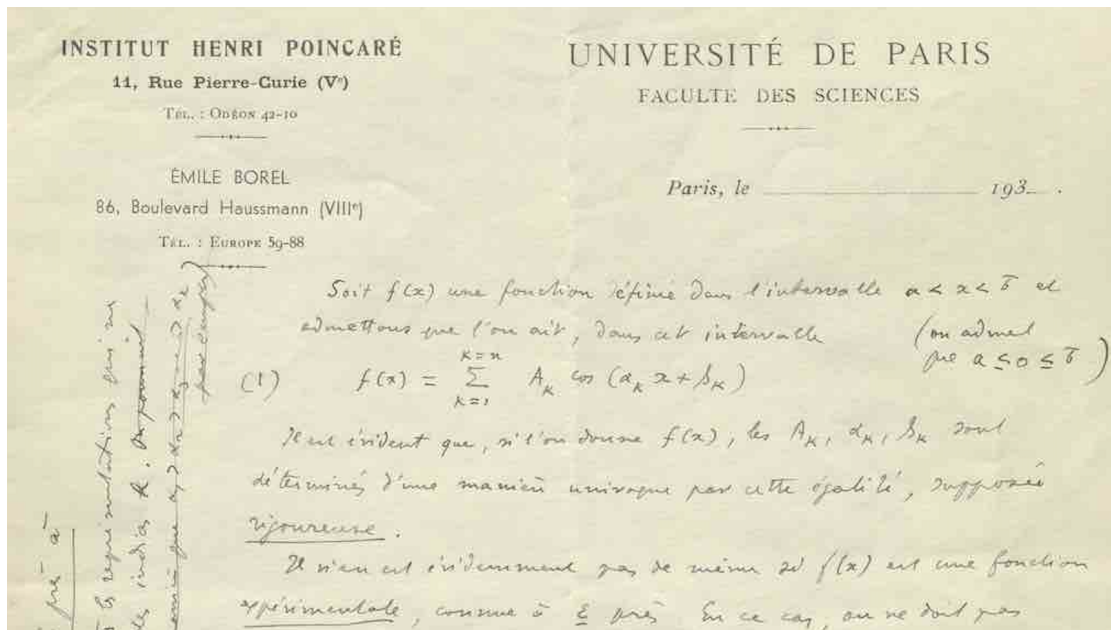 INSTITUT HENRI POINCARÉ
11, Rue Pierre-Curie (Vᵉ)
TÉL. : ODÉON 42-10
ÉMILE BOREL
86, Boulevard Haussmann (VIIIᵉ)
TÉL. : EUROPE 59-88
UNIVERSITÉ DE PARIS
FACULTE DES SCIENCES
Paris, le 193 .
Soit f(x) une fonction définie dans l'intervalle a < x < b et
admettons que l'on ait, dans cet intervalle
(on admet
que a ≤ 0 ≤ b)
(1) f(x) = Σ A_K cos (α_K x + β_K)
k=n
k=1
Il est évident que, si l'on donne f(x), les A_K, α_K, β_K sont
déterminés d'une manière univoque par cette égalité, supposée
rigoureuse.
Il n'en est évidemment pas de même si f(x) est une fonction
expérimentale, connue à ε près. En ce cas, on ne doit pas
près à
les représentations qui ne
des indices k.
par exemple